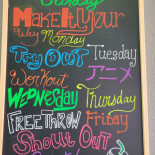 Sunday
Make It Your
Way Monday
Try OUT Tuesday
Workout アニメ
WEDNESDAY Thursday
FREETHROW Friday
Shouts Out